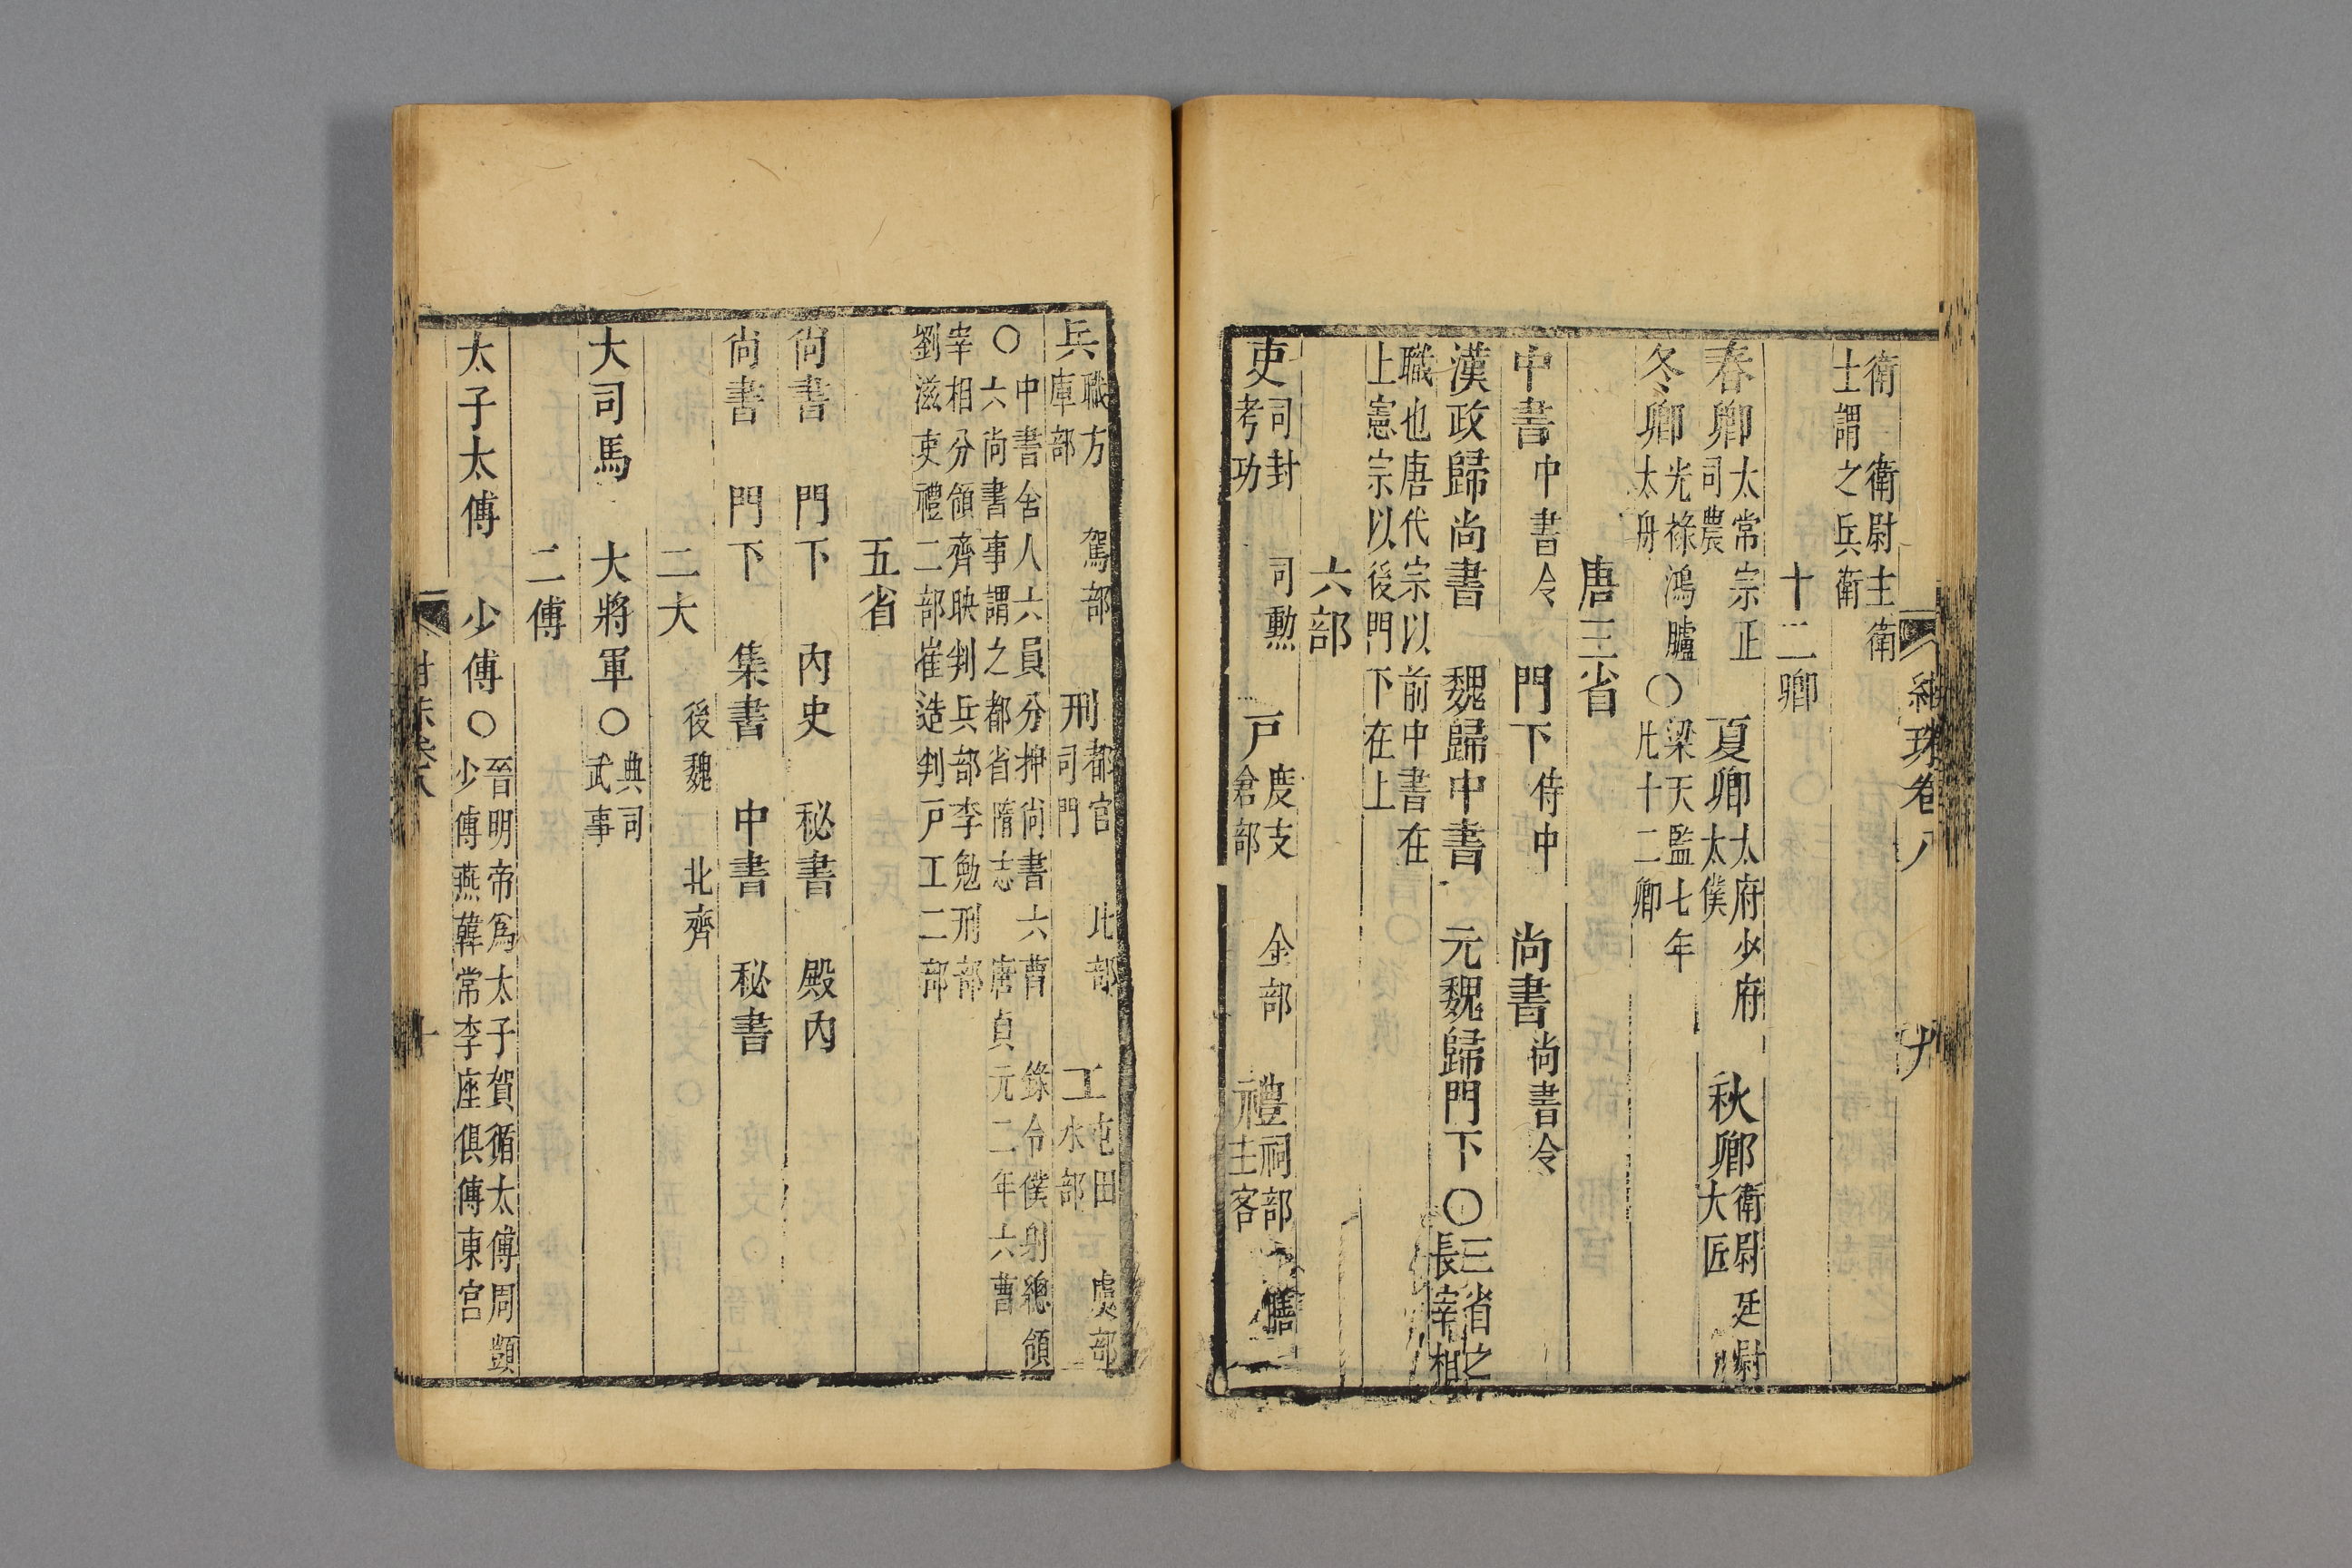 紺珠卷八
九
衛 衛尉主衛
士謂之兵衛
十二卿
春卿 太常宗正司農 夏卿 太府少府太僕 秋卿 衛尉廷尉大匠
冬卿 光祿鴻臚太舟 ○ 梁天監七年此十二卿
唐三省
中書 中書令 門下 侍中 尚書 尚書令
漢政歸尚書 魏歸中書 元魏歸門下 ○ 三省之長宰相
職也唐代宗以前中書在
上憲宗以後門下在上
六部
吏 司封 司勲 考功 戸 度支 金部 倉部 禮 祠部 膳 主客
兵 職方 駕部 庫部 刑 都官 比部 司門 工 屯田 虞部 水部
○ 中書舍人六員分押尚書六曹 錄令僕射總領
六尚書事謂之都省隋志 唐貞元二年六曹
宰相分領齊映判兵部李勉刑部
劉滋吏禮二部崔造判戸工二部
五省
尚書 門下 內史 秘書 殿內
尚書 門下 集書 中書 秘書
二大 後魏 北齊
大司馬 大將軍 ○ 典司武事
二傅
太子太傅 少傅 ○ 晉明帝爲太子賀循太傅周顗
少傅燕韓常李座俱傅東宮
紺珠卷八
十